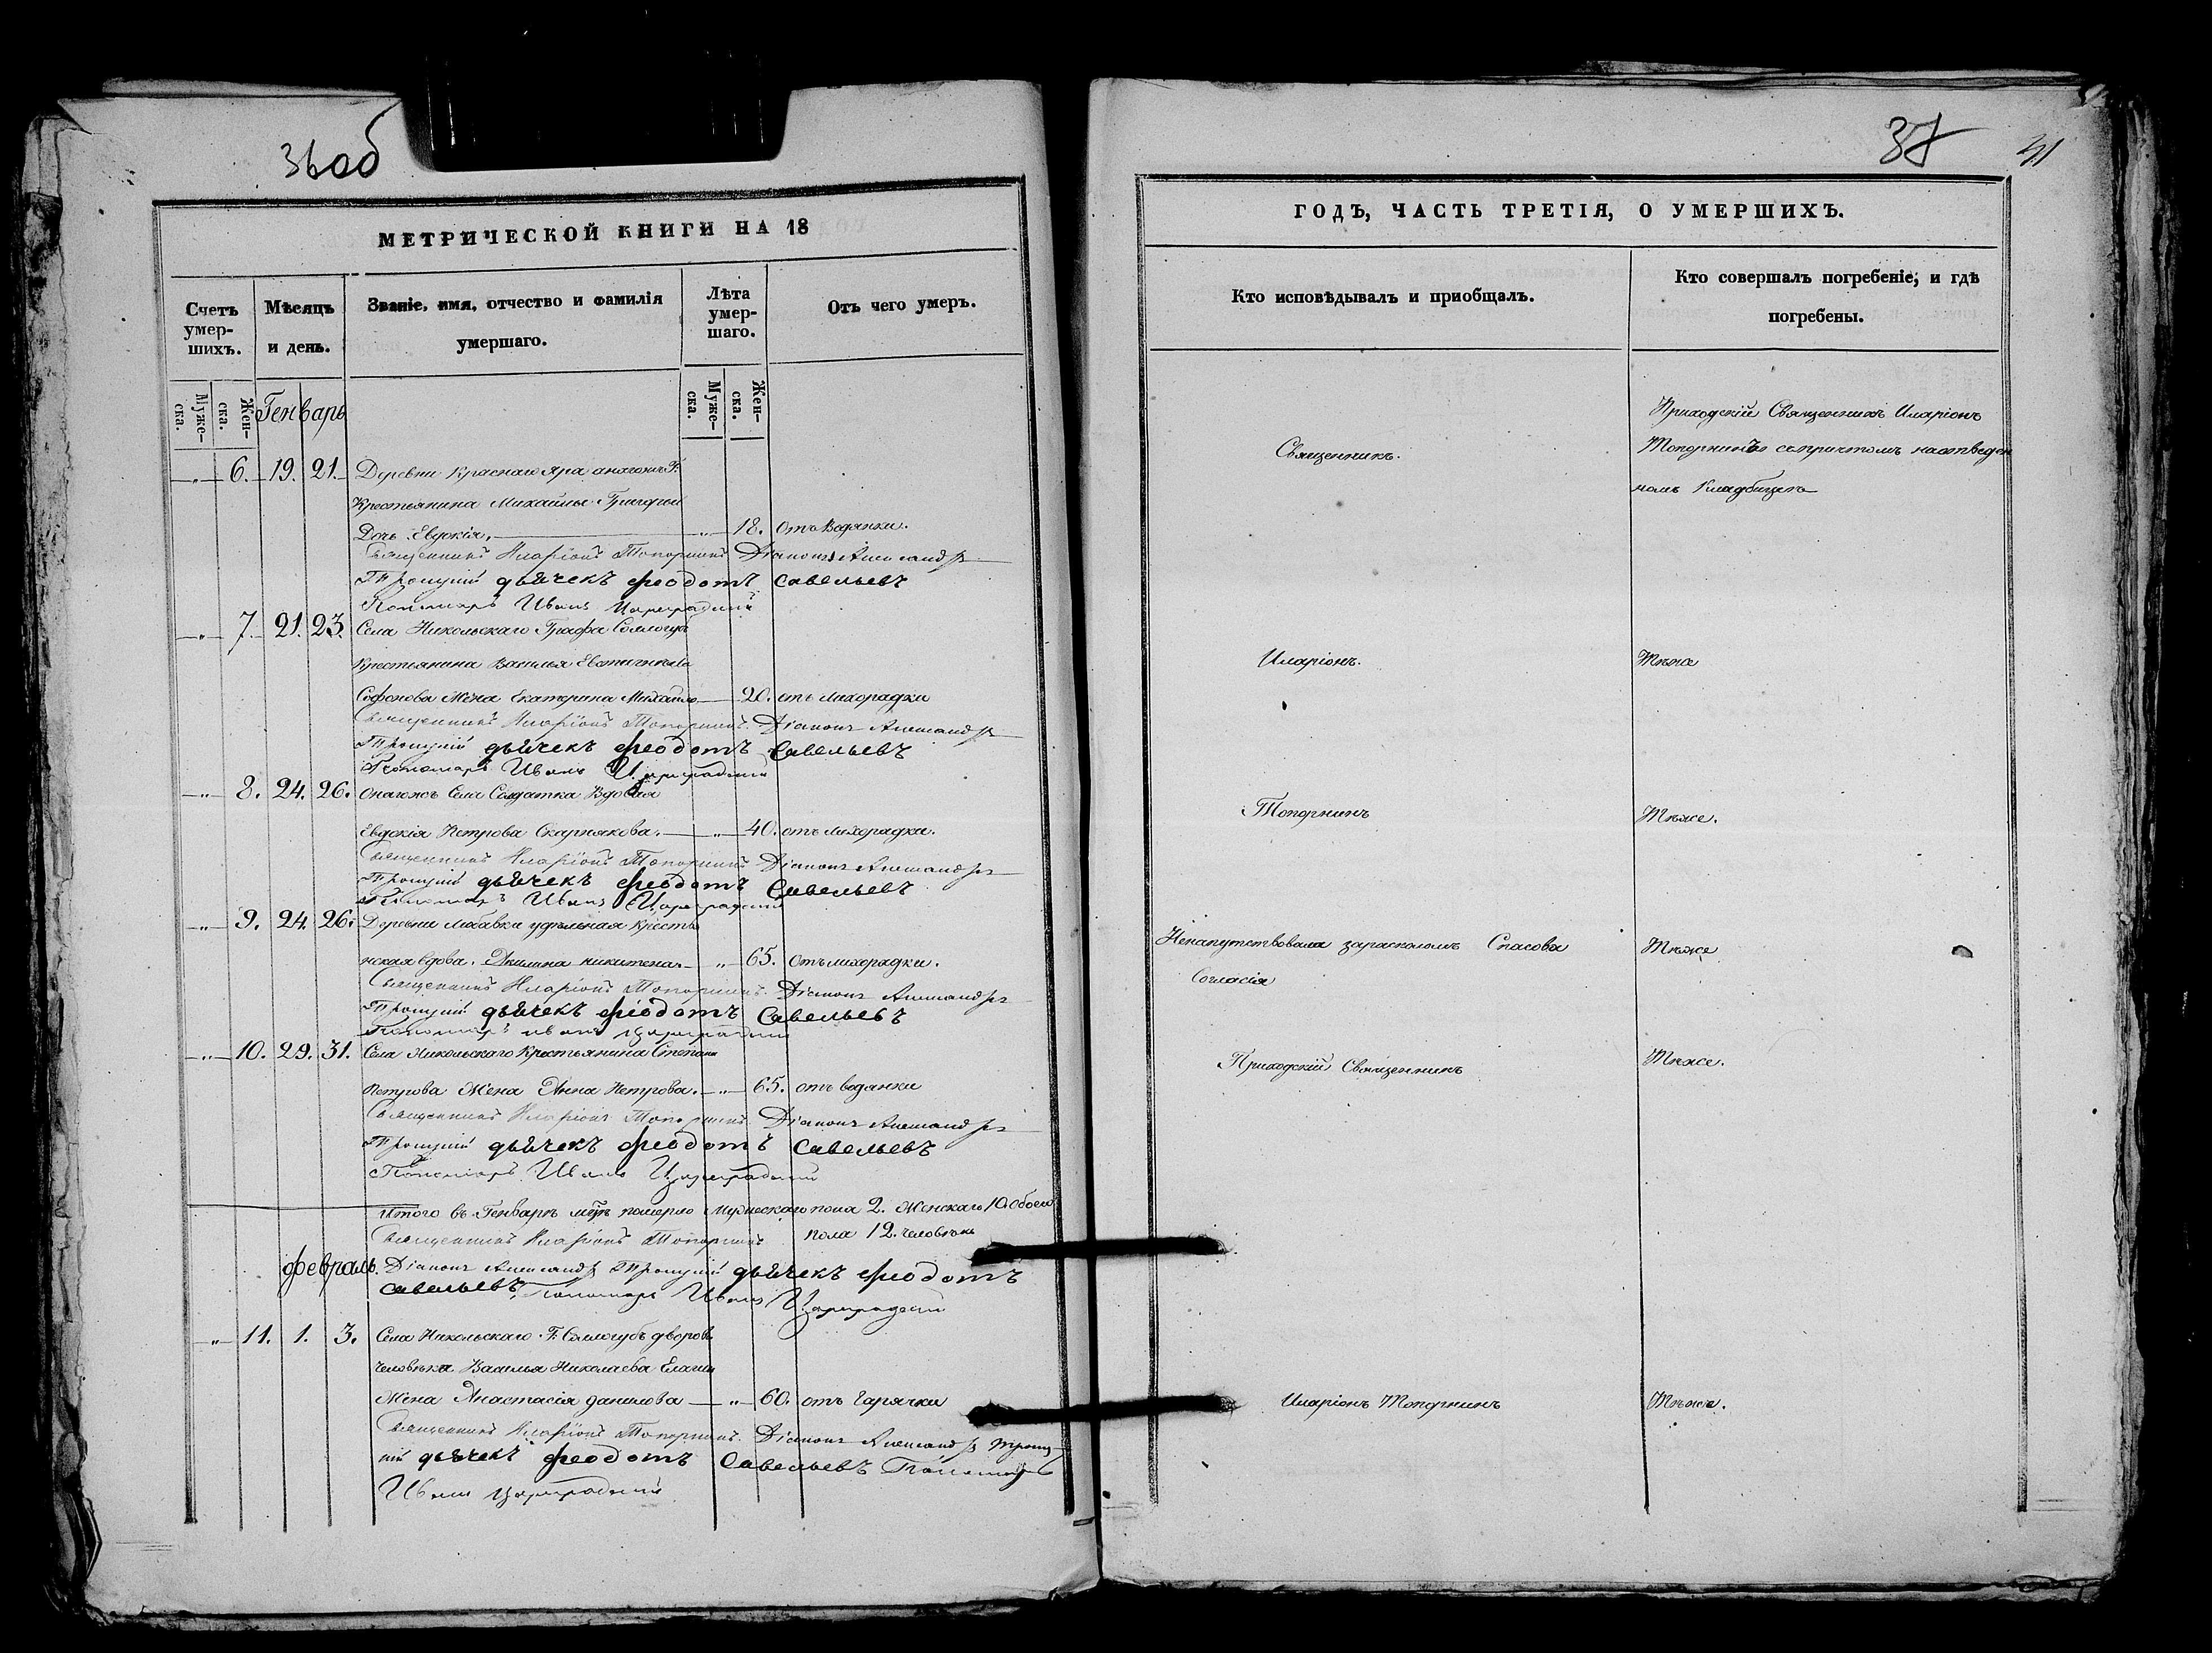 36об
МЕТРИЧЕСКОЙ КНИГИ НА 18
Счетъ умер-шихъ.
Мѣсяцъ и день.
Званіе, имя, отчество и фамилія умершаго.
Лѣта умер-шаго.
Отъ чего умеръ.
Муже-ска.
Жен-ска.
Генварь
Муже-ска.
Жен-ска.
6. 19. 21. Деревни Краснаго Яра
Крестьянина Михайлы Григорьи
Дочь Евдокія. 18. отъ Водянки.
Священникъ Иларіонъ Топорнинъ Діаконъ Александръ
Троицкій дьячекъ Ѳеодотъ Савельевъ
Пономарь Иванъ Цареградскій
7. 21. 23. Села Никольскаго Графа Соллогуб
Крестьянина Василья
Софонова Жена Екатерина Михайло 20. отъ лихорадки
Священникъ Иларіонъ Топорнинъ Діаконъ Александръ
Троицкій дьячекъ Ѳеодотъ Савельевъ
Пономарь Иванъ Цареградскій
8. 24. 26. Онагожъ Села Солдатка Вдовая
Евдокія Петрова Скарнякова. 40. отъ лихорадки.
Священникъ Иларіонъ Топорнинъ Діаконъ Александръ
Троицкій дьячекъ Ѳеодотъ Савельевъ
Пономарь Иванъ Цареградскій
9. 24. 26. Деревни Лабавки удѣльная Крестья
нская вдова. Акилина никитена. 65. отъ лихорадки.
Священникъ Иларіонъ Топорнинъ Діаконъ Александръ
Троицкій дьячекъ Ѳеодотъ Савельевъ
Пономарь иванъ Цареградскій
10. 29. 31. Села Никольскаго Крестьянина Степана
Петрова Жена Анна Петрова. 65. отъ водянки
Священникъ Иларіонъ Топорнинъ Діаконъ Александръ
Троицкій дьячекъ Ѳеодотъ Савельевъ
Пономарь Иванъ Цареградскій
Итого въ Генварѣ мцѣ померло Мужескаго пола 2. Женскаго 10. обоего
Священникъ Иларіонъ Топорнинъ пола 12. человѣкъ
февраль. Діаконъ Александръ Троицкій дьячекъ Ѳеодотъ
Савельевъ Пономарь Иванъ Цареградскій
11. 1. 3. Села Никольскаго Г. Соллогубъ дворов
человѣка Василья Николаева Елаги
Жена Анастасія данилова 60. отъ Гарячки
Священникъ Иларіонъ Топорнинъ. Діаконъ Александръ Троиц
кій дьячекъ Ѳеодотъ Савельевъ Пономарь
Иванъ Цареградскій
37 41
ГОДЪ, ЧАСТЬ ТРЕТІЯ, О УМЕРШИХЪ.
Кто исповѣдывалъ и приобщалъ.
Кто совершалъ погребеніе, и гдѣ погребены.
Приходскій Священникъ Иларіонъ
Священникъ. Топорнинъ съ причтомъ на отведен
номъ Кладбищѣ
Иларіонъ. Тѣже
Топорнинъ Тѣже.
Ненапутствована за расколомъ Спасова Тѣже
Согласія
Приходскій Священникъ Тѣже.
Иларіонъ Топорнинъ Тѣже.